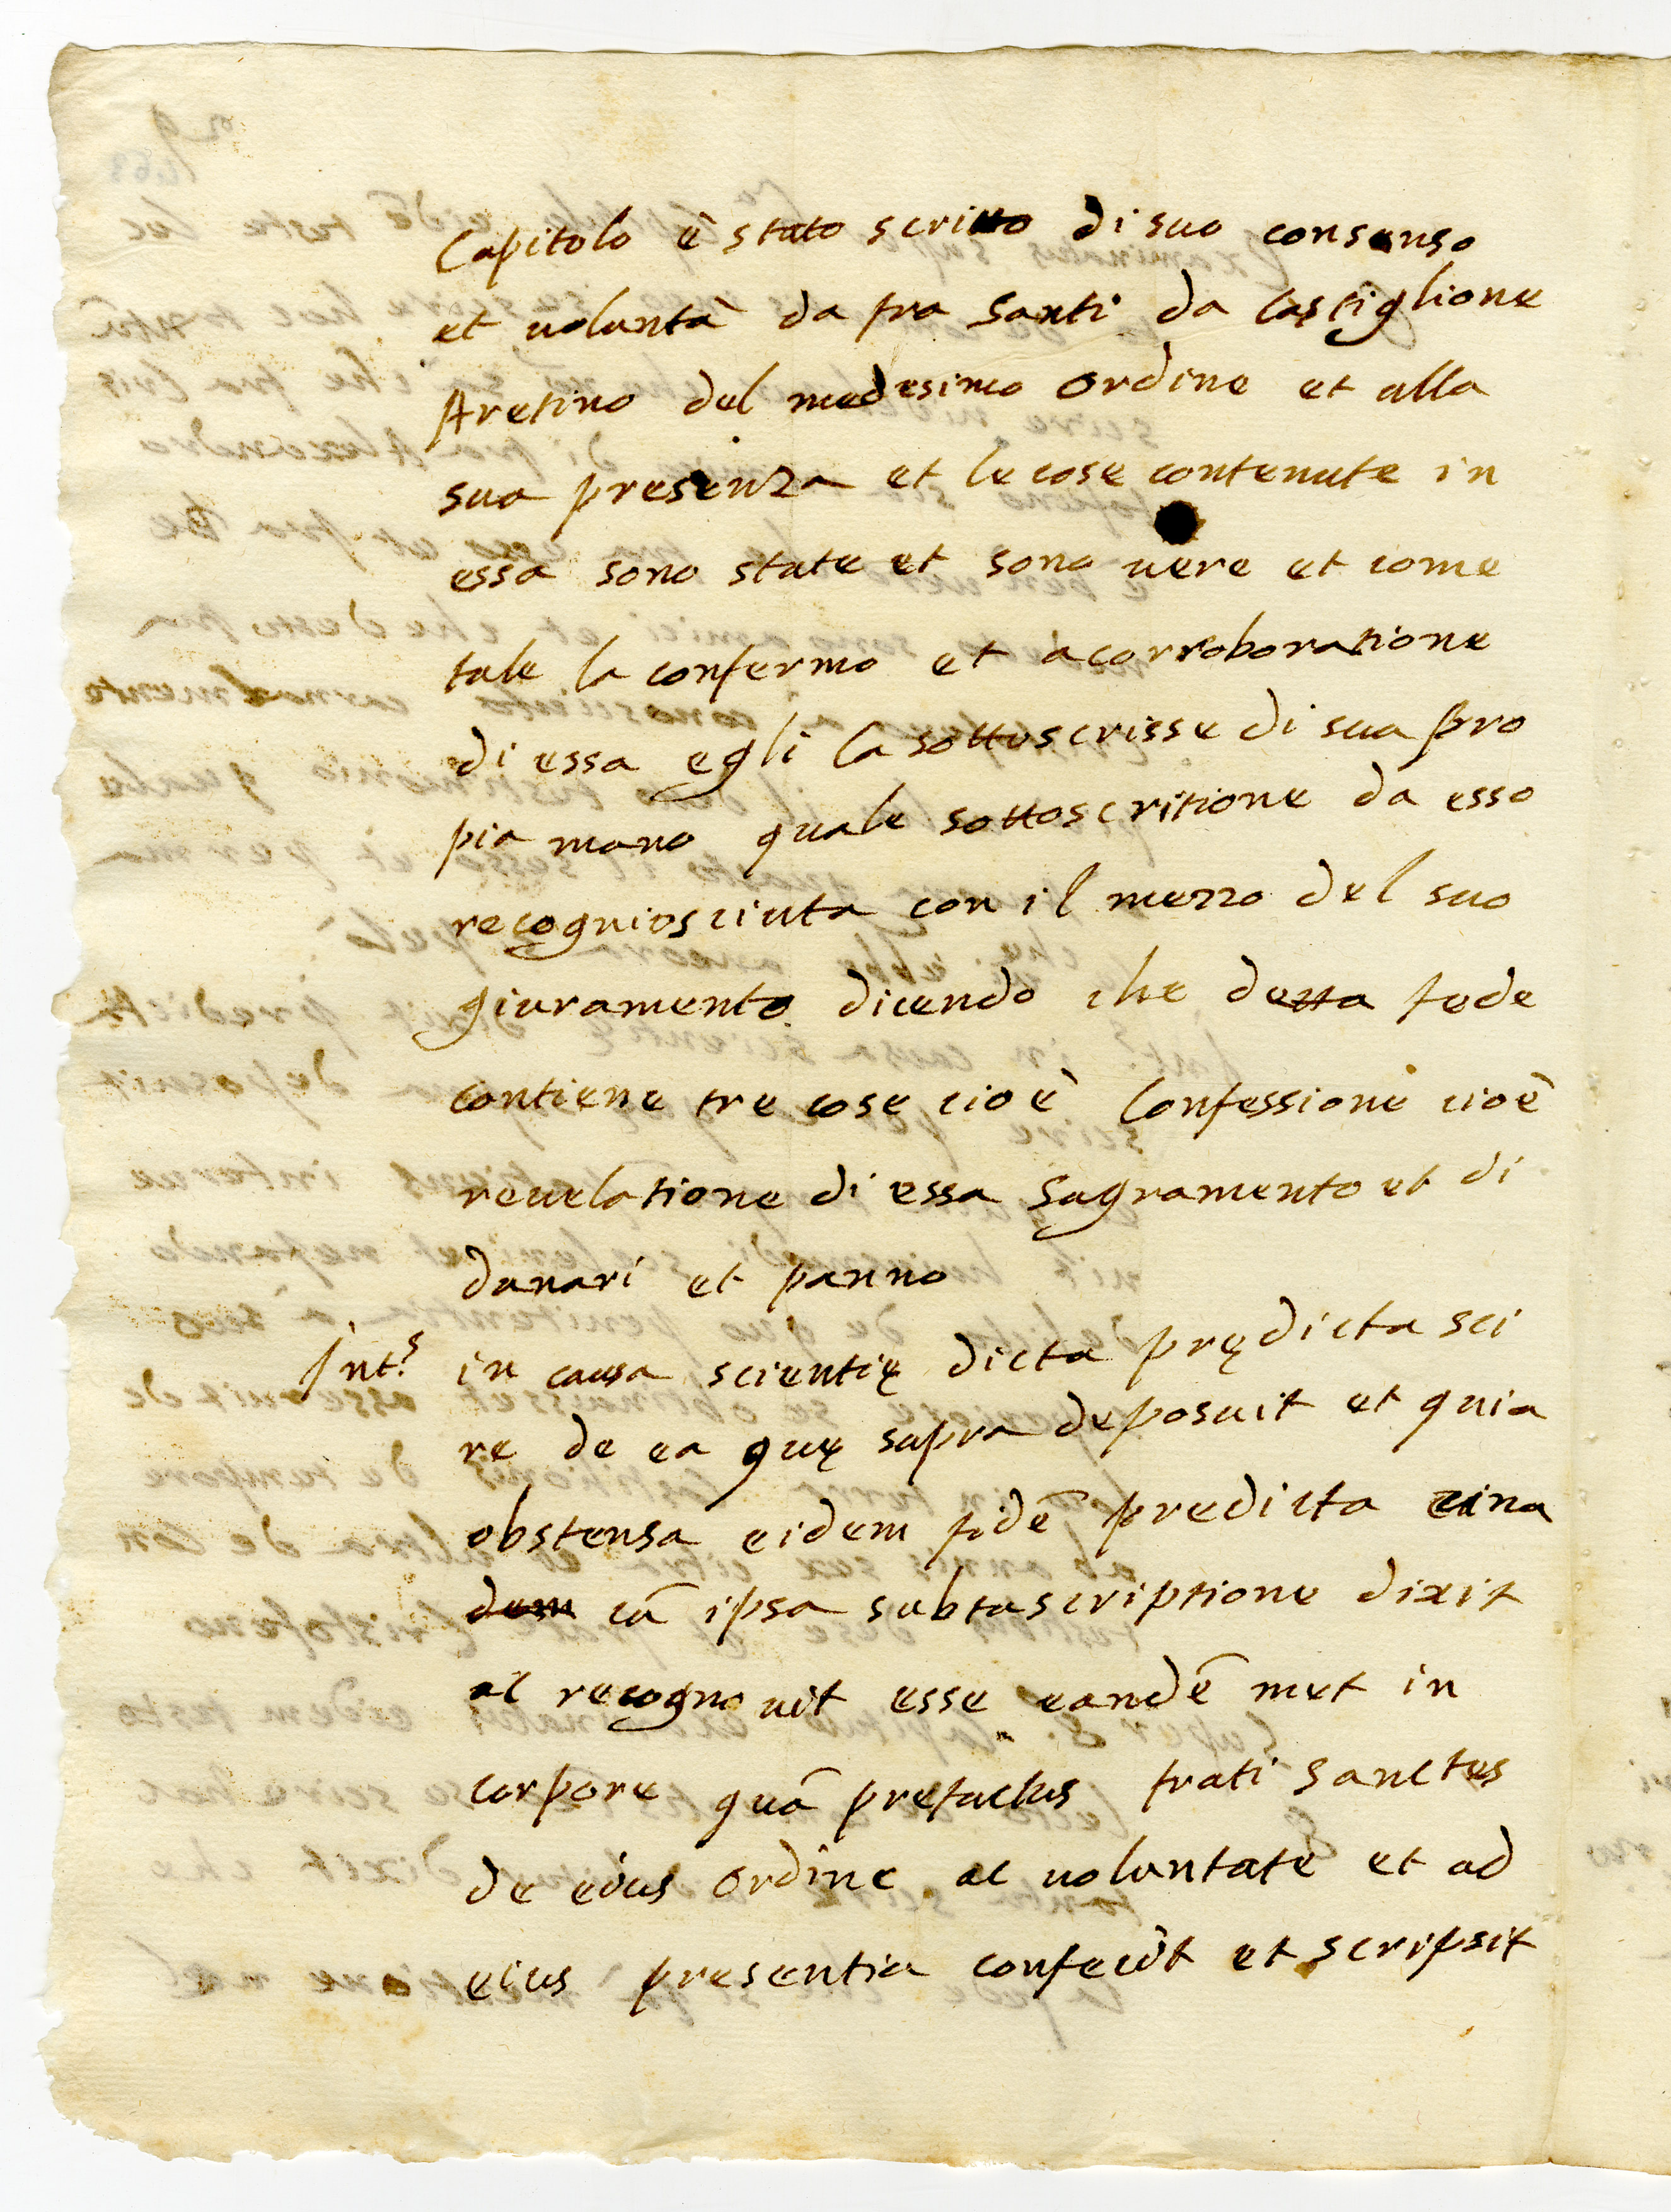 Capitolo è stato scritto di suo consenso
et uoluntà da fra Santi da Castiglione
Aretino del medesimo ordine et alla
sua presenza et le cose contenute in
essa sono state et sono uere et come
tale la confermo et à corroboratione
di essa egli la sottoscrisse di sua pro
pia mano quale sottoscritione da esso
recogniosciuta con il mezzo del suo
giuramento dicendo che detta fede
contiene tre cose cioè Confessione cioè
reuelatione di essa Sagramento et di
danari et panno
Int.s in causa scientię dicta prędicta sci
re de ea quę supra deposuit et quia
obstensa eidem fidē predicta
cū ipsa subtascriptione dixit
ac recogno uit esse eandē met in
corpore quā prefactus frati Sanctes
de eius ordine ac uoluntate et ad
eius presentia confecit et scripsit